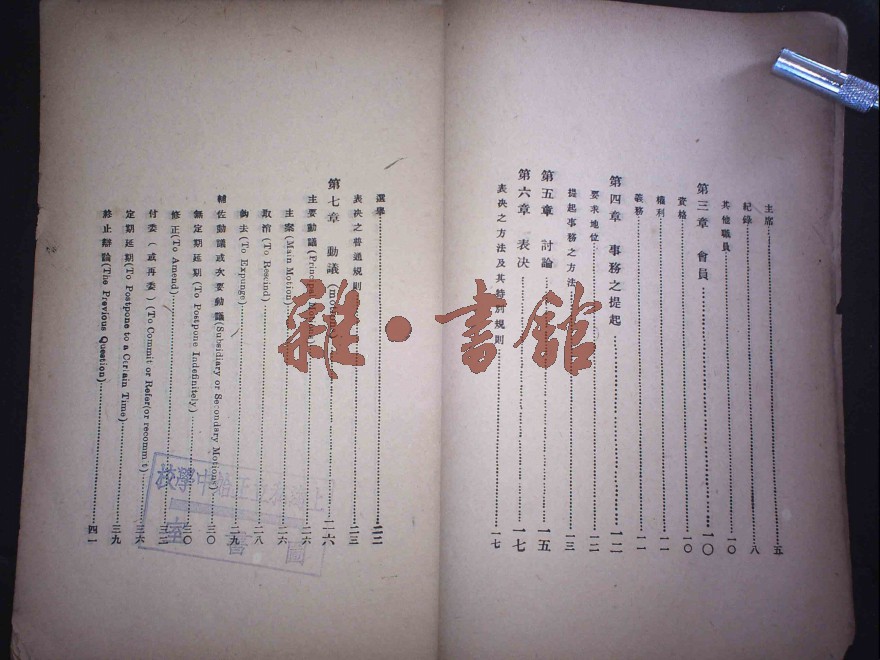 主席⋯⋯五
紀錄⋯⋯八
其他職員⋯⋯一〇
第三章 會員⋯⋯一〇
資格⋯⋯一〇
權利⋯⋯一一
義務⋯⋯一一
第四章 事務之提起⋯⋯一二
要求地位⋯⋯一二
提起事務之方法⋯⋯一三
第五章 討論⋯⋯一五
第六章 表决⋯⋯一七
表决之方法及其特別規則⋯⋯一七
選舉⋯⋯二二
表决之普通規則⋯⋯二三
第七章 動議(motions)⋯⋯二六
主要動議(Principal Motion)⋯⋯二六
主案(Main Motion)⋯⋯二六
取消(To Rescind)⋯⋯二八
鈎去(To Expunge)⋯⋯二九
輔佐動議或次要動議(Subsidiary or Secondary Motions)⋯⋯三〇
無定期延期(To Postpone Indefinitely)⋯⋯三〇
修正(To Amend)⋯⋯三三
付委(或再委)(To Commit or Refer(or recommit)⋯⋯三六
定期延期(To Postpone to a Certain Time)⋯⋯三九
終止辯論(The Previous Question)⋯⋯四一
雜·書館
圖書室